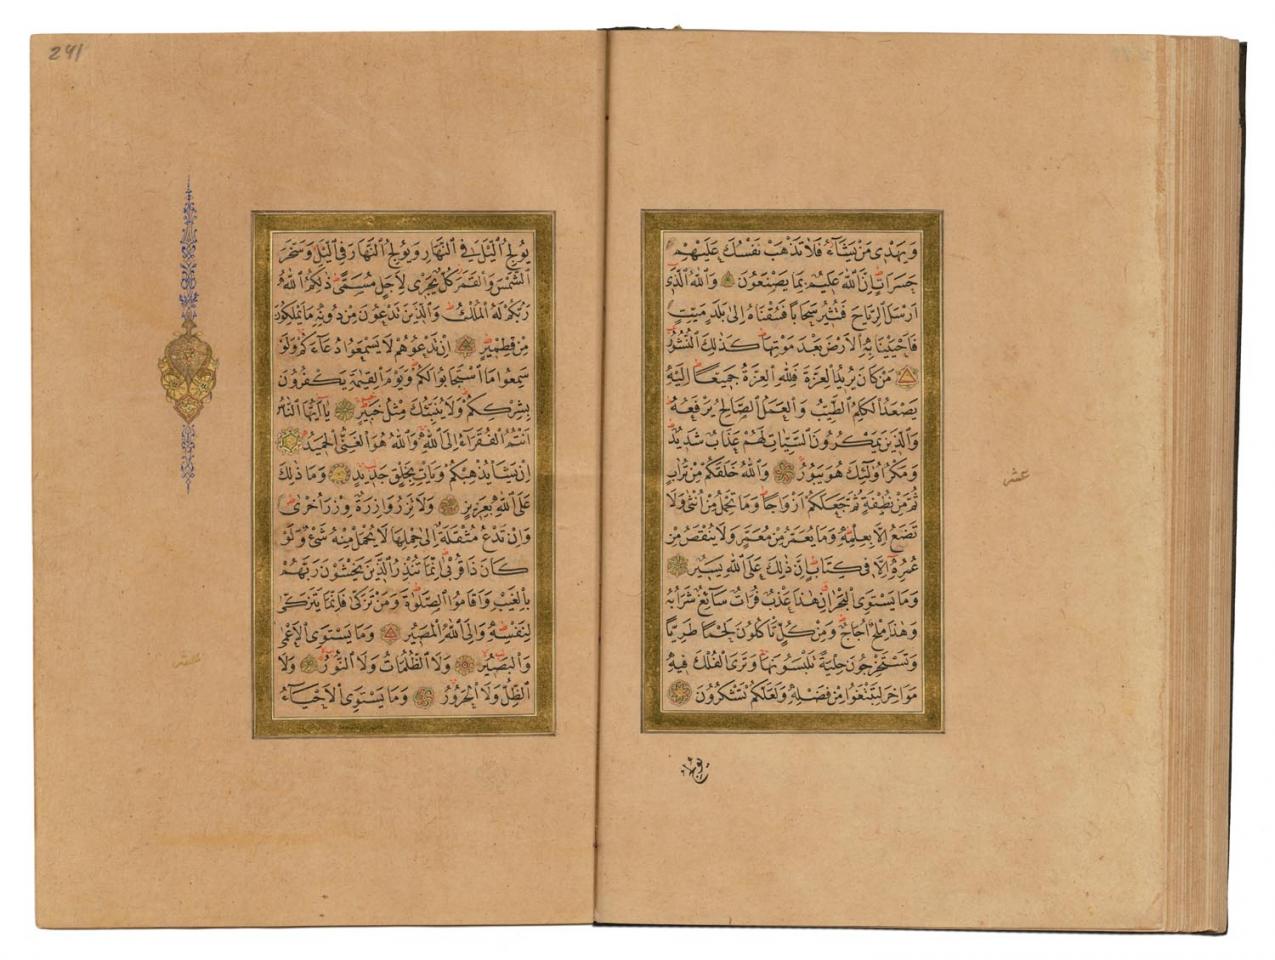 وَيَهْدِى مَنْ يَشَآءُ فَلَا تَذْهَبْ نَفْسُكَ عَلَيْهِمْ
حَسَرَاتٍ اِنَّ اللّٰهَ عَلِيمٌ بِمَا يَصْنَعُونَ وَاللّٰهُ الَّذِى
اَرْسَلَ الرِّيَاحَ فَتُثِيرُ سَحَابًا فَسُقْنَاهُ اِلٰى بَلَدٍ مَيِّتٍ
فَاَحْيَيْنَا بِهِ الْاَرْضَ بَعْدَ مَوْتِهَا كَذٰلِكَ النُّشُورُ
مَنْ كَانَ يُرِيدُ الْعِزَّةَ فَلِلّٰهِ الْعِزَّةُ جَمِيعًا اِلَيْهِ
يَصْعَدُ الْكَلِمُ الطَّيِّبُ وَالْعَمَلُ الصَّالِحُ يَرْفَعُهُ
وَالَّذِينَ يَمْكُرُونَ السَّيِّئَاتِ لَهُمْ عَذَابٌ شَدِيدٌ
وَمَكْرُ اُولٰٓئِكَ هُوَ يَبُورُ وَاللّٰهُ خَلَقَكُمْ مِنْ تُرَابٍ
ثُمَّ مِنْ نُطْفَةٍ ثُمَّ جَعَلَكُمْ اَزْوَاجًا وَمَا تَحْمِلُ مِنْ اُنْثٰى وَلَا
تَضَعُ اِلَّا بِعِلْمِهِ وَمَا يُعَمَّرُ مِنْ مُعَمَّرٍ وَلَا يُنْقَصُ مِنْ
عُمُرِهِ اِلَّا فِى كِتَابٍ اِنَّ ذٰلِكَ عَلَى اللّٰهِ يَسِيرٌ
وَمَا يَسْتَوِى الْبَحْرَانِ هٰذَا عَذْبٌ فُرَاتٌ سَآئِغٌ شَرَابُهُ
وَهٰذَا مِلْحٌ اُجَاجٌ وَمِنْ كُلٍّ تَاْكُلُونَ لَحْمًا طَرِيًّا
وَتَسْتَخْرِجُونَ حِلْيَةً تَلْبَسُونَهَا وَتَرَى الْفُلْكَ فِيهِ
مَوَاخِرَ لِتَبْتَغُوا مِنْ فَضْلِهِ وَلَعَلَّكُمْ تَشْكُرُونَ
يولج
عشر
241
يُولِجُ الَّيْلَ فِى النَّهَارِ وَيُولِجُ النَّهَارَ فِى الَّيْلِ وَسَخَّرَ
الشَّمْسَ وَالْقَمَرَ كُلٌّ يَجْرِى لِاَجَلٍ مُسَمًّى ذٰلِكُمُ اللّٰهُ
رَبُّكُمْ لَهُ الْمُلْكُ وَالَّذِينَ تَدْعُونَ مِنْ دُونِهِ مَا يَمْلِكُونَ
مِنْ قِطْمِيرٍ اِنْ تَدْعُوهُمْ لَا يَسْمَعُوا دُعَآءَكُمْ وَلَوْ
سَمِعُوا مَا اسْتَجَابُوا لَكُمْ وَيَوْمَ الْقِيٰمَةِ يَكْفُرُونَ
بِشِرْكِكُمْ وَلَا يُنَبِّئُكَ مِثْلُ خَبِيرٍ يَآ اَيُّهَا النَّاسُ
اَنْتُمُ الْفُقَرَآءُ اِلَى اللّٰهِ وَاللّٰهُ هُوَ الْغَنِىُّ الْحَمِيدُ
اِنْ يَشَاْ يُذْهِبْكُمْ وَيَاْتِ بِخَلْقٍ جَدِيدٍ وَمَا ذٰلِكَ
عَلَى اللّٰهِ بِعَزِيزٍ وَلَا تَزِرُ وَازِرَةٌ وِزْرَ اُخْرٰى
وَاِنْ تَدْعُ مُثْقَلَةٌ اِلٰى حِمْلِهَا لَا يُحْمَلْ مِنْهُ شَىْءٌ وَلَوْ
كَانَ ذَا قُرْبٰى اِنَّمَا تُنْذِرُ الَّذِينَ يَخْشَوْنَ رَبَّهُمْ
بِالْغَيْبِ وَاَقَامُوا الصَّلٰوةَ وَمَنْ تَزَكّٰى فَاِنَّمَا يَتَزَكّٰى
لِنَفْسِهِ وَاِلَى اللّٰهِ الْمَصِيرُ وَمَا يَسْتَوِى الْاَعْمٰى
وَالْبَصِيرُ وَلَا الظُّلُمَاتُ وَلَا النُّورُ وَلَا
الظِّلُّ وَلَا الْحَرُورُ وَمَا يَسْتَوِى الْاَحْيَآءُ
عشر